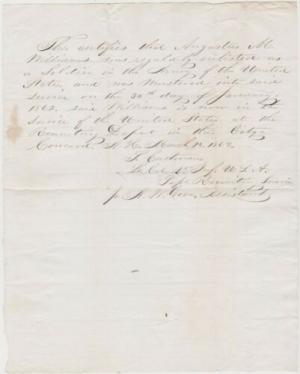 This certifies that Augustus M.
Williams was regularly enlisted as
a Soldier in the Army of the United
States, and was Mustered into said
Service on the 30th day of January,
1862, said Williams is now in
Service of the United States at the
Recruiting Depot in this City.
Concord N. H. March 12, 1862
T. Cadman
Lt. Col. Inf. U.S.A.
Supt Recruiting Service